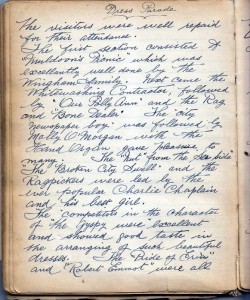 Press Parade
The visitors were well repaid
for their attendance.
The first section consisted of
"Muldoon's Picnic" which was
excellently well done by the
Wringham Family. Next came the
Whitewashing Contractor, followed
by "Our Polly Ann" and the Rag
and Bone Dealer". The "City
newspaper boy" was followed by
Wally O'Morgan with the
Hand Organ gave pleasure to
many. The "Nut from the Sea-side"
The "Broken City Swell" and the
Ragpickers were led by the
ever popular Charlie Chaplain
and his best girl.
The competitors in the character
of the Gypsy were excellent
and showed good taste in
the arranging of such beautiful
dresses. The "Bride of Erin"
and "Robert Emmet" were all